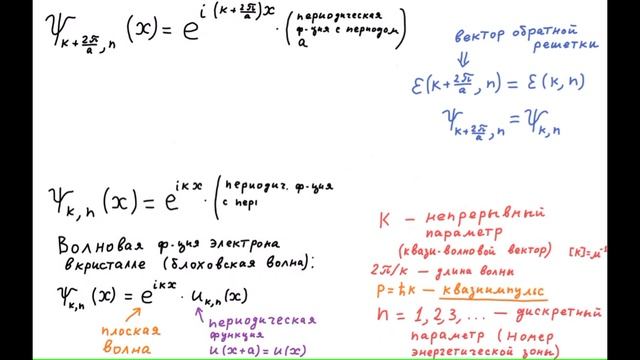 ψ_{k+2π/a, n} (x) = e^{i(k+2π/a)x} · (периодическая
ф-ция с периодом
a)
вектор обратной
решетки
⇓
ε(k+2π/a, n) = ε(k, n)
ψ_{k+2π/a, n} = ψ_{k,n}
ψ_{k,n} (x) = e^{ikx} · (периодич. ф-ция
с пер
Волновая ф-ция электрона
в кристалле (блоховская волна):
ψ_{k,n} (x) = e^{ikx} · u_{k,n}(x)
плоская
волна
периодическая
функция
u(x+a) = u(x)
K – непрерывный
параметр
(квази-волновой вектор) [k]=м⁻¹
2π/k – длина волны
P=ħk – квазиимпульс
n = 1,2,3,... – дискретный
параметр (номер
энергетической зоны)